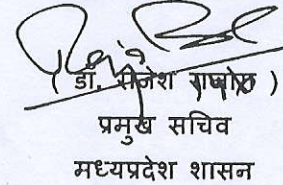 ( डॉ. राजेश राजौरा )
प्रमुख सचिव
मध्यप्रदेश शासन